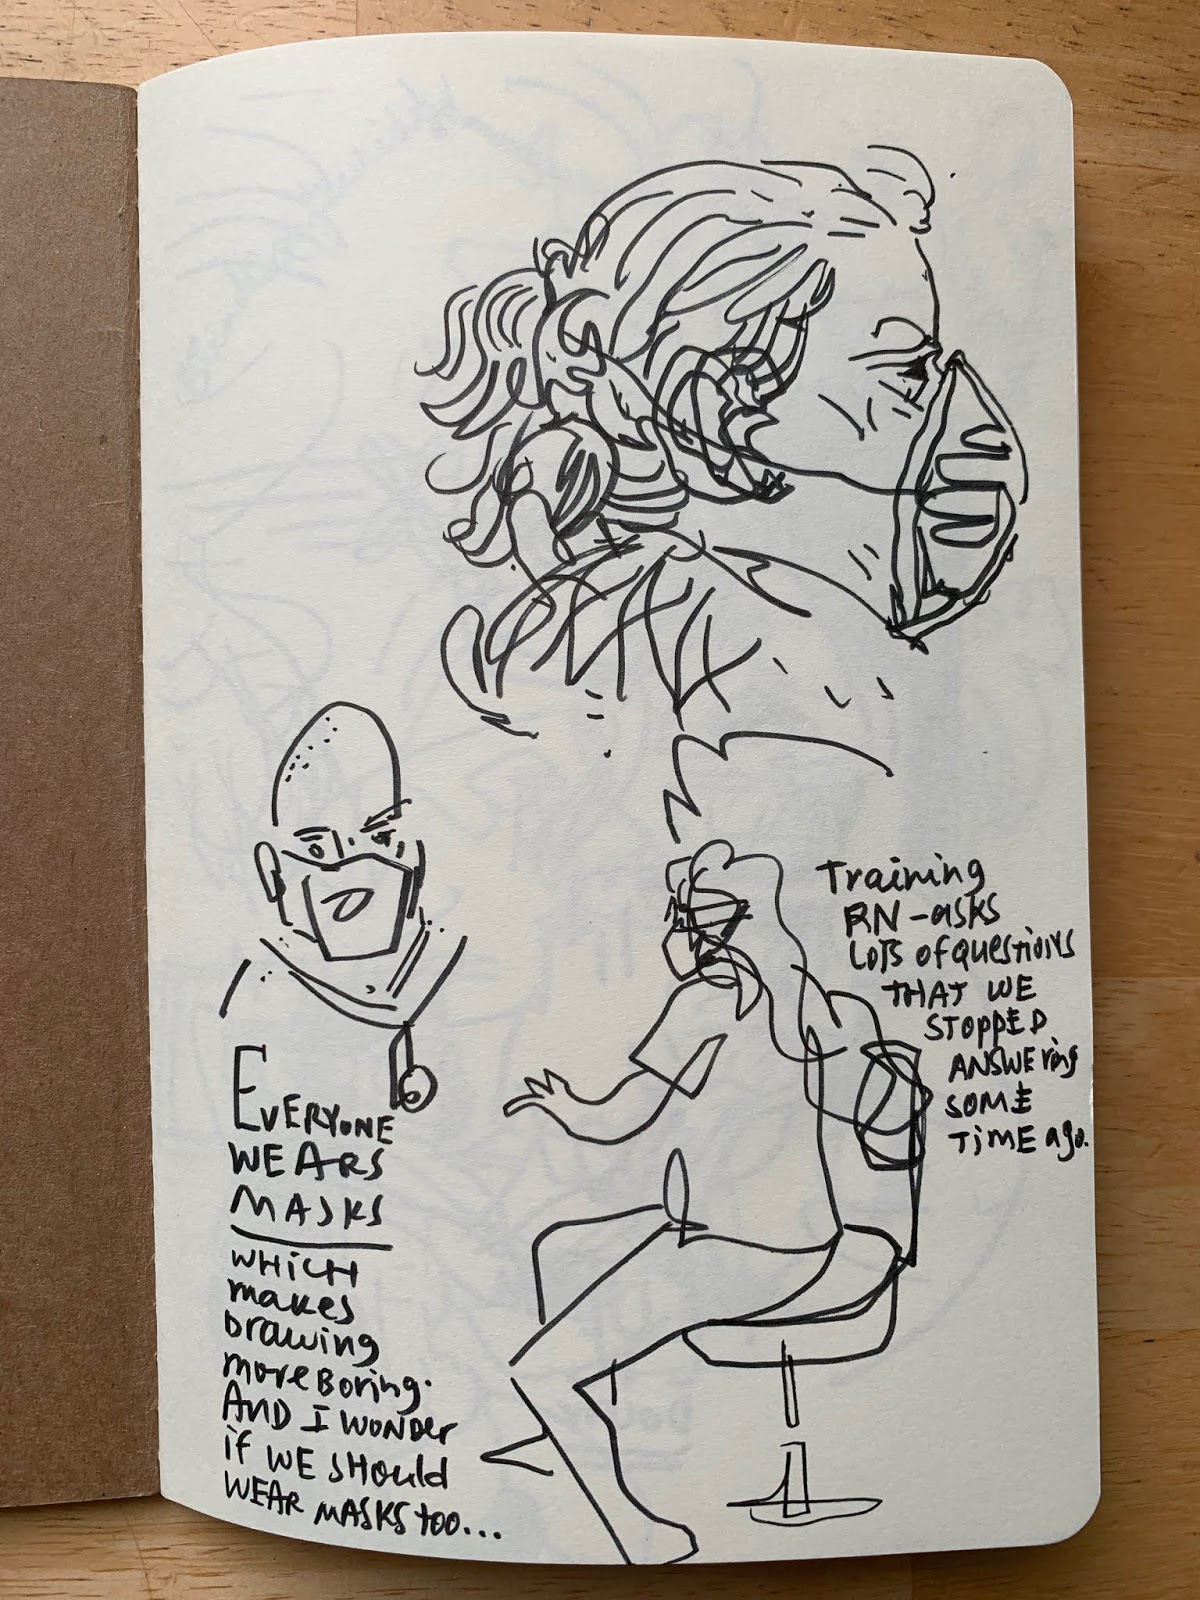 Training
RN-asks
Lots of questions
THAT WE
STOPPED
ANSWEring
SOME
TiME ago.
EVERYONE
WEARS
MASKS
WHiCH
makes
Drawing
more Boring.
AND I WONDER
if WE SHould
WEAR MASKS too...